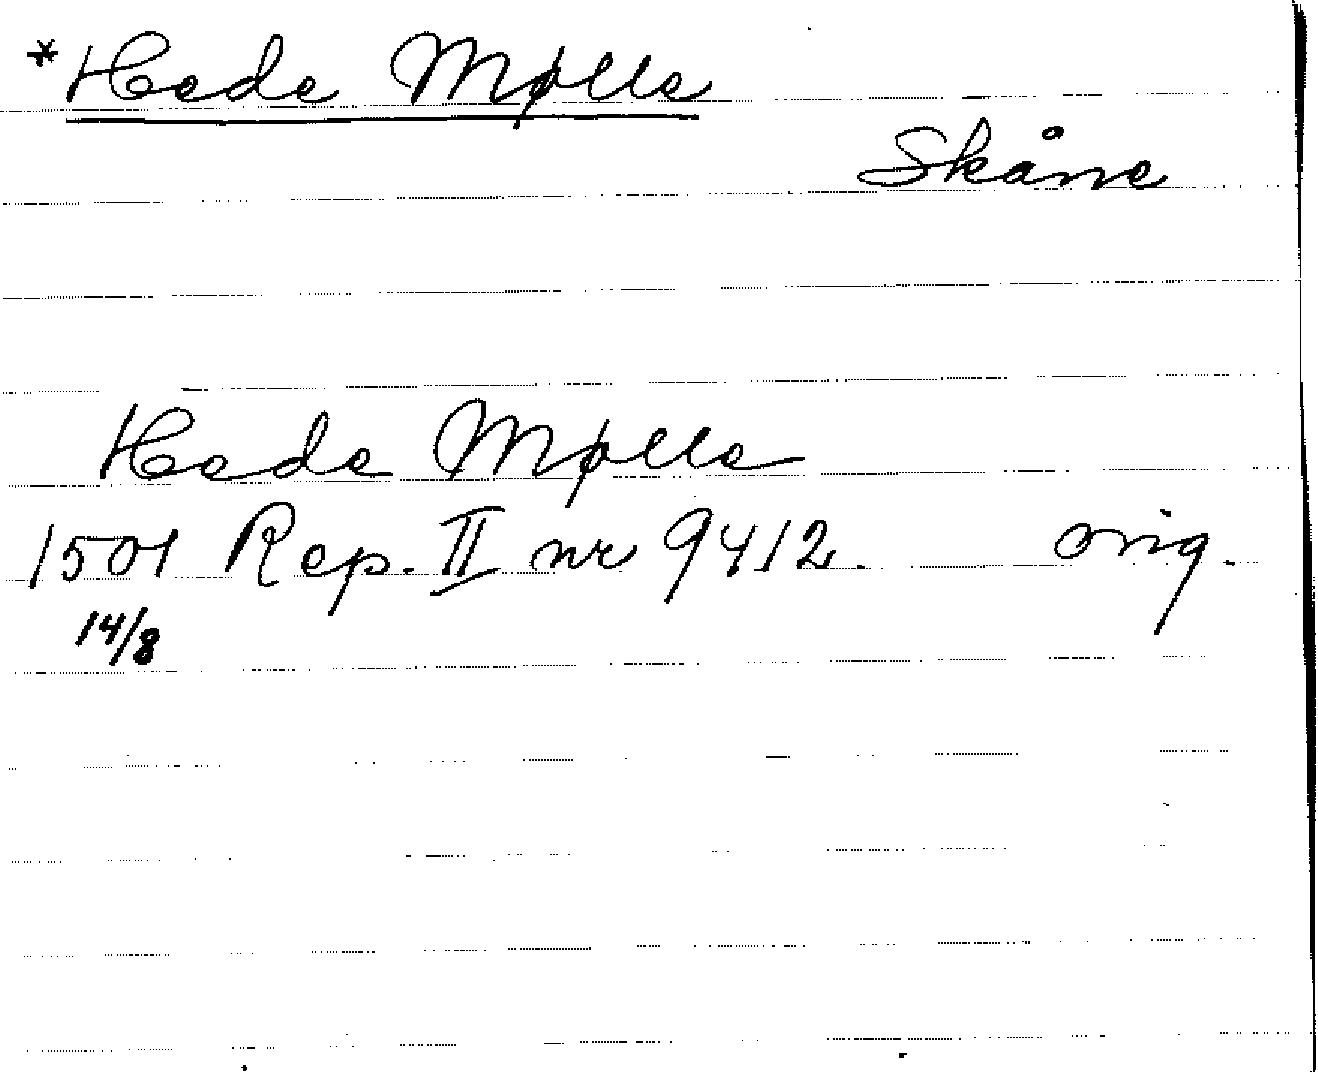 *Hede Mølle
Skåne
Hede Mølle
1501 Rep. II nr 9412. orig.
14/8